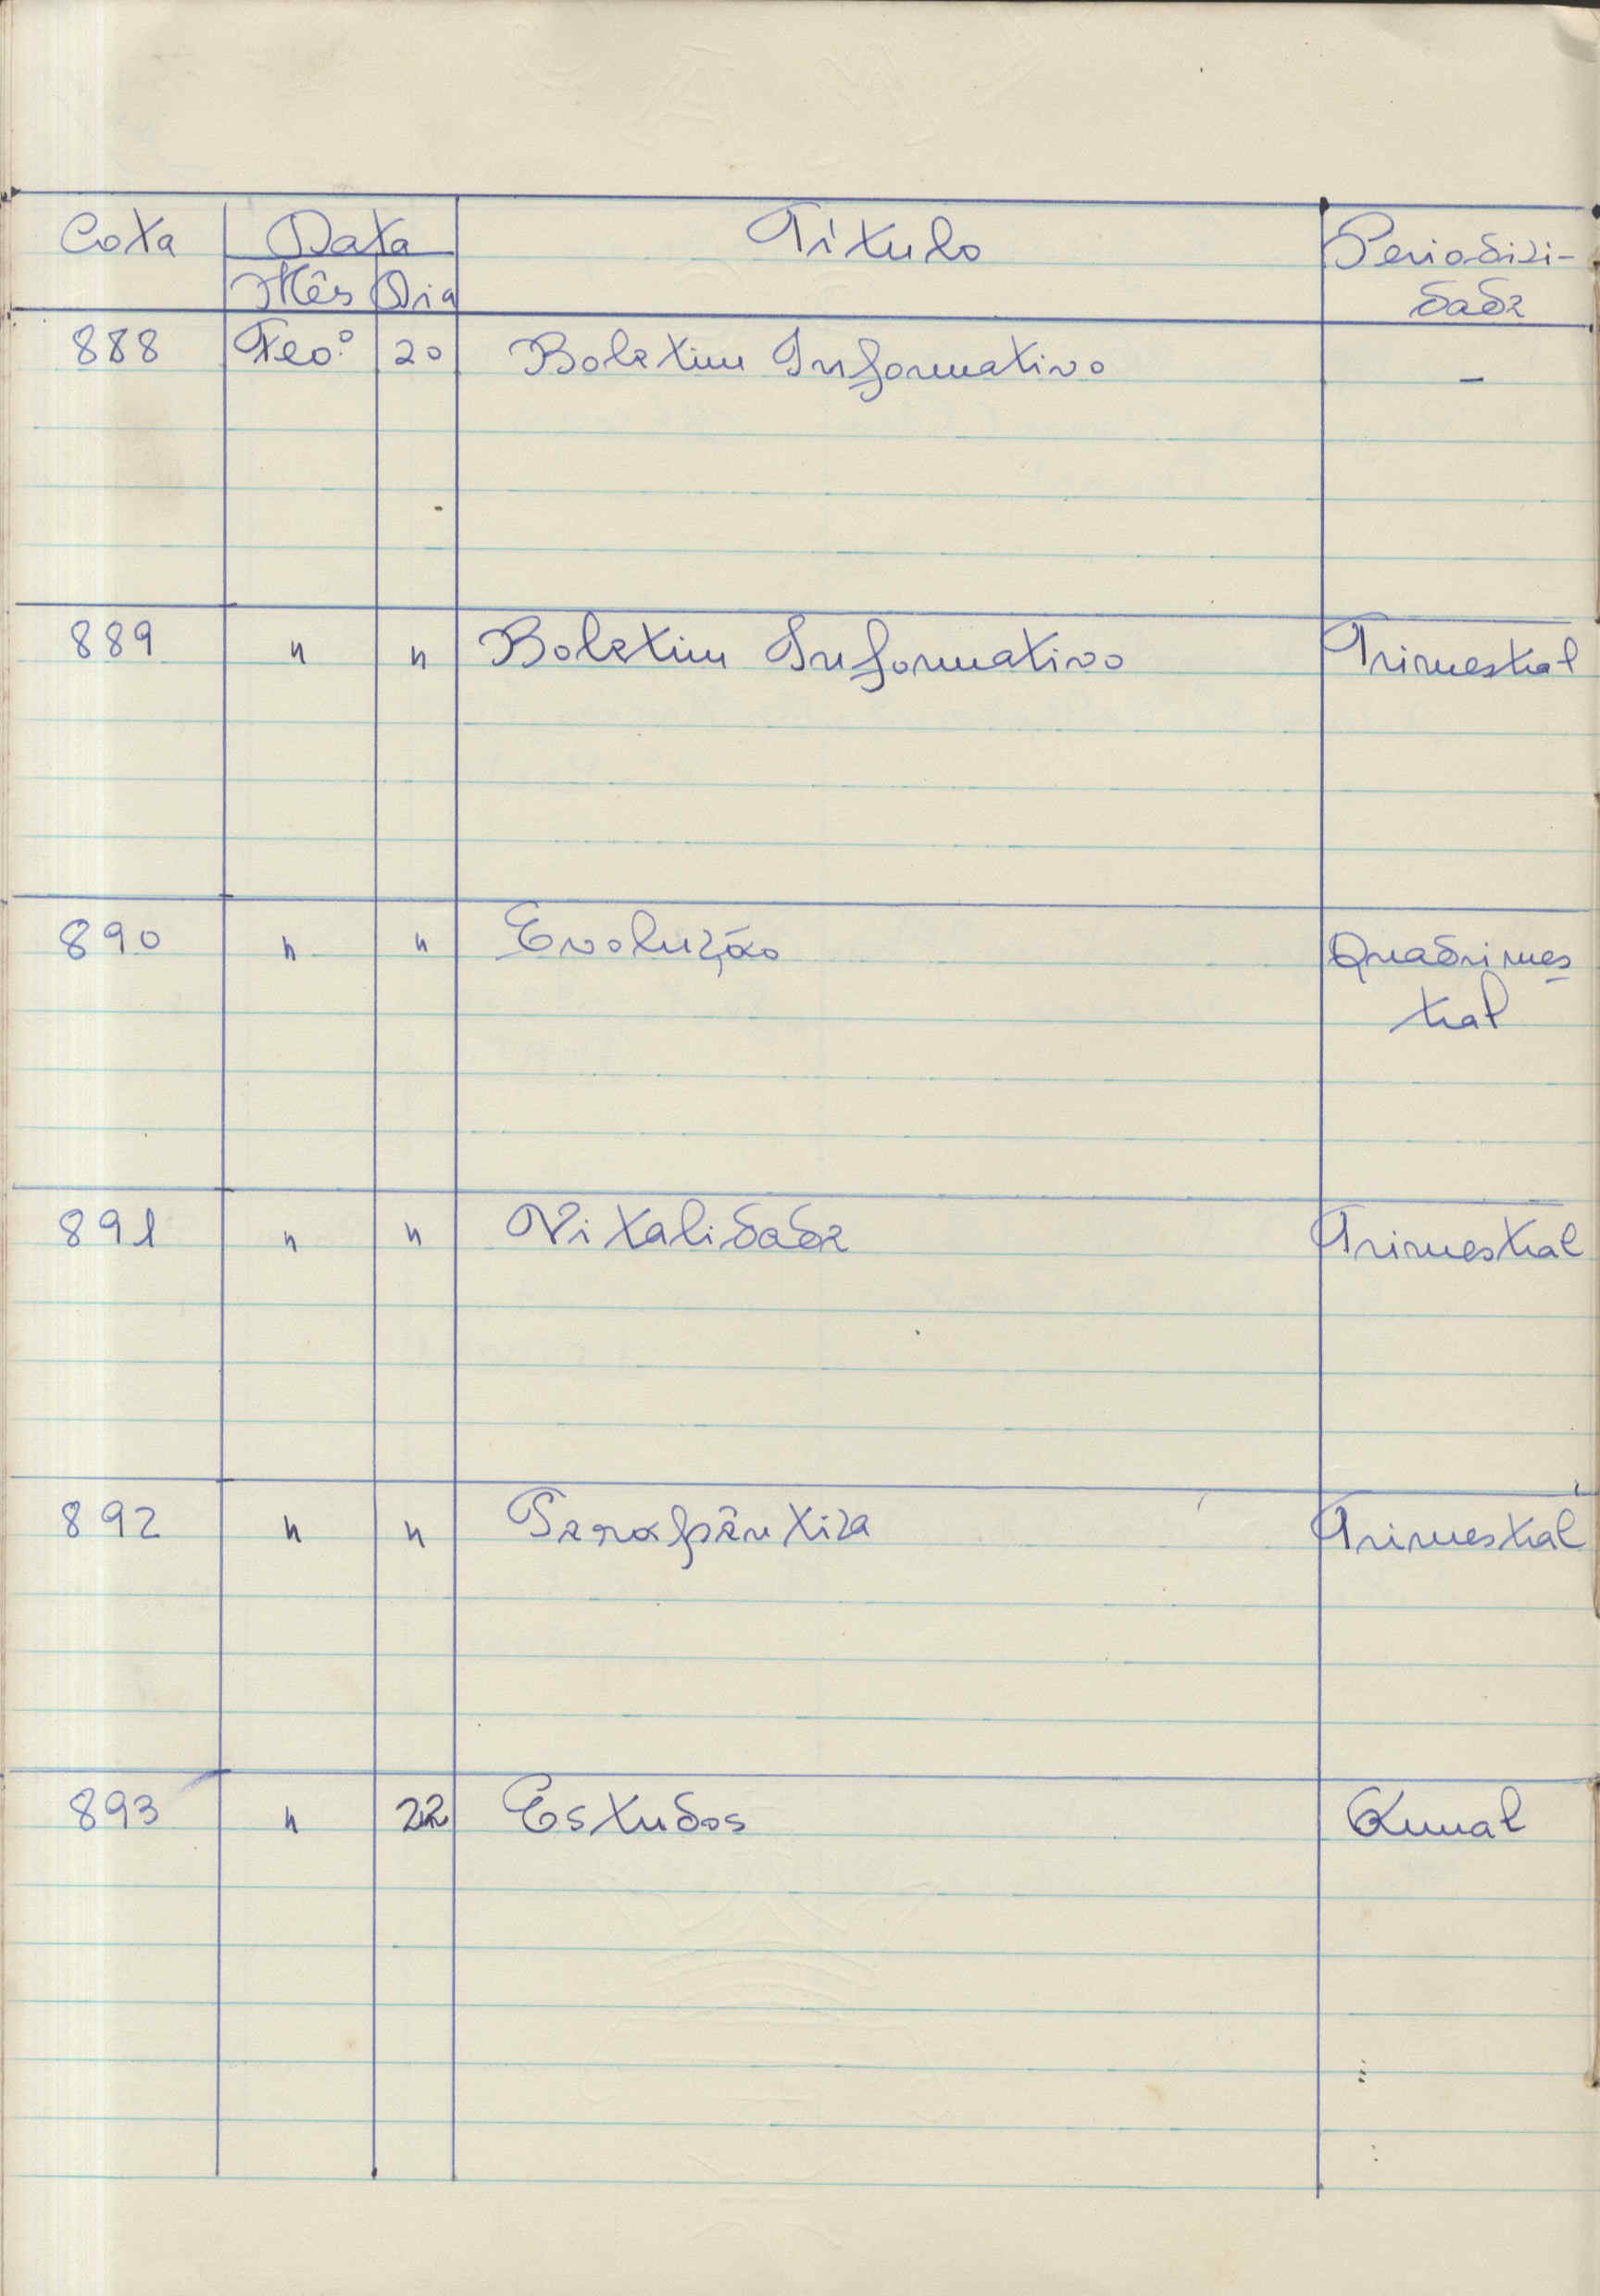 Cota Data Título Periodici-
Mês Dia dade
888 Fev.º 20 Boletim Informativo -
889 " " Boletim Informativo Trimestral
890 " " Evolução Quadrimes
tral
891 " " Vitalidade Trimestral
892 " " Terapêutica Trimestral
893 " 22 Estudos Anual